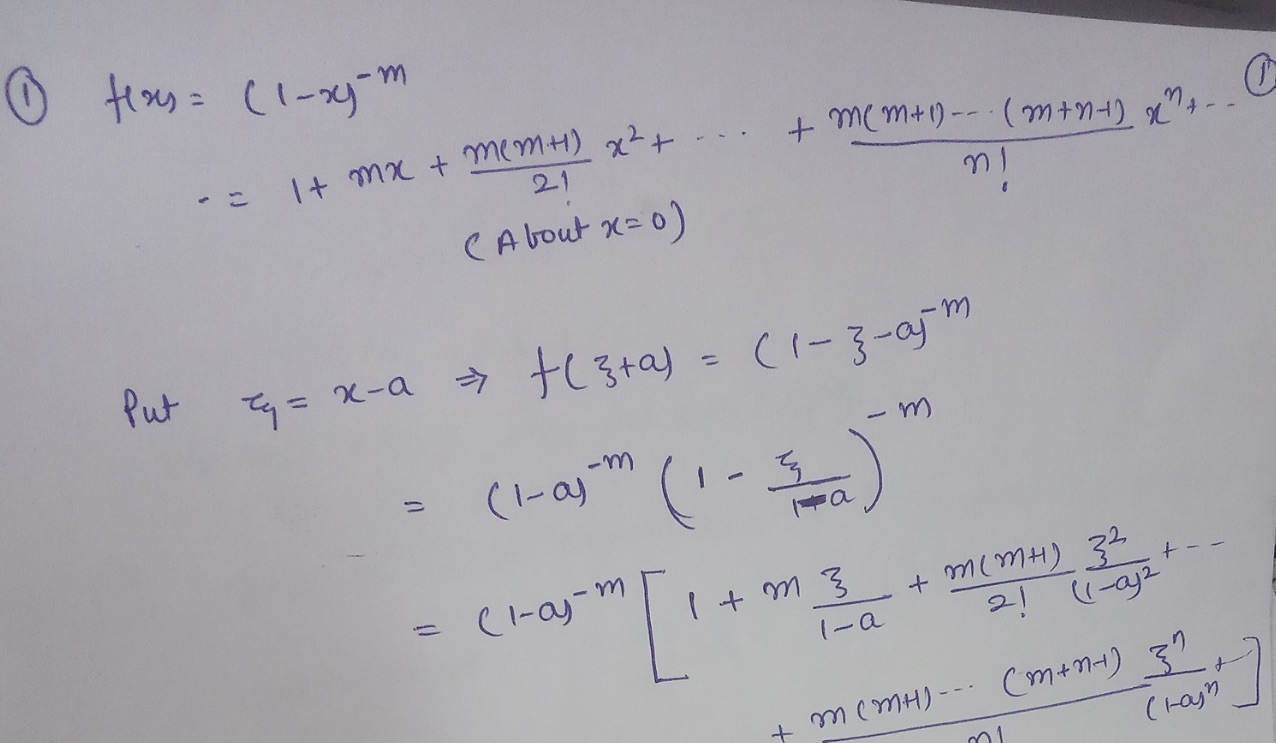 ① f(x) = (1-x)^{-m} ①
= 1 + mx + \frac{m(m+1)}{2!} x^2 + .... + \frac{m(m+1)---(m+n-1)}{n!} x^n + --
(About x=0)
Put ξ = x-a ⇒ f(ξ+a) = (1-ξ-a)^{-m}
= (1-a)^{-m} (1 - \frac{ξ}{1-a})^{-m}
= (1-a)^{-m} [ 1 + m \frac{ξ}{1-a} + \frac{m(m+1)}{2!} \frac{ξ^2}{(1-a)^2} + --
+ \frac{m(m+1)--- (m+n-1)}{n!} \frac{ξ^n}{(1-a)^n} + ]